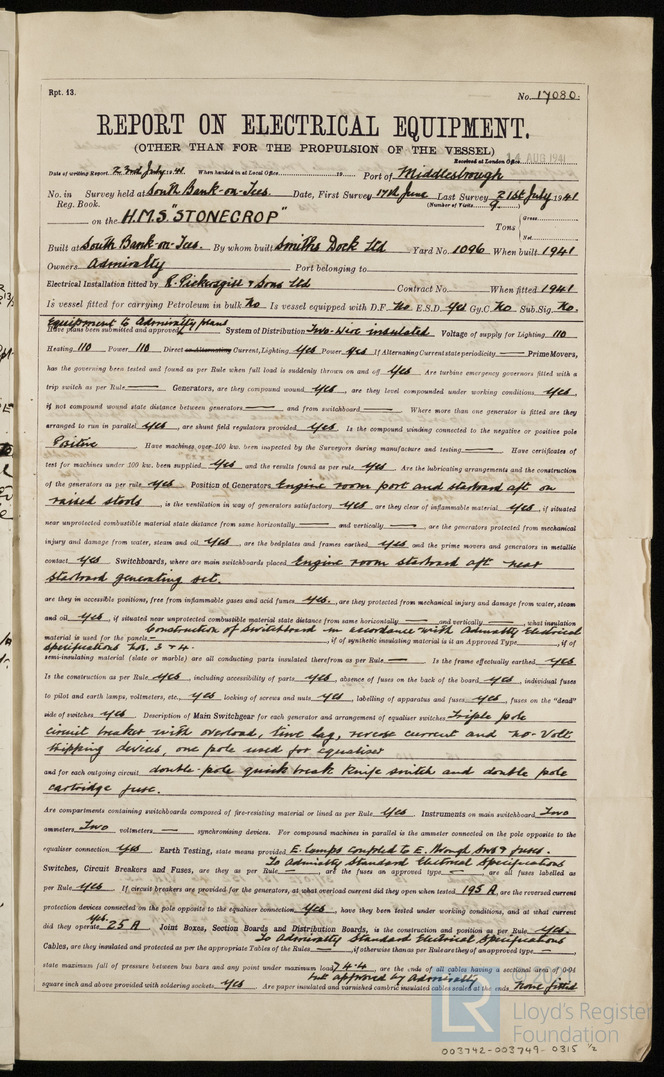 Rpt. 13.
No. 17080.
REPORT ON ELECTRICAL EQUIPMENT.
(OTHER THAN FOR THE PROPULSION OF THE VESSEL)
Received at London Office AUG 1941
Date of writing Report 23rd July 1941 When handed in at Local Office 19 Port of Middlesbrough
No. in Survey held at South Bank-on-Tees. Date, First Survey 17th June Last Survey 21st July 1941
Reg. Book. (Number of Visits 9)
on the H.M.S "STONECROP" Tons Gross Net
Built at South Bank-on-Tees. By whom built Smiths Dock Ltd Yard No. 1096 When built 1941
Owners Admiralty Port belonging to
Electrical Installation fitted by R. Pickersgill & Sons Ltd Contract No. When fitted 1941
Is vessel fitted for carrying Petroleum in bulk No Is vessel equipped with D.F. No E.S.D. Yes Gy.C. No Sub.Sig. No.
Equipment to Admiralty plans
Have plans been submitted and approved System of Distribution Two-Wire insulated Voltage of supply for Lighting 110
Heating 110 Power 110 Direct or Alternating Current, Lighting Yes Power Yes If Alternating Current state periodicity — Prime Movers,
has the governing been tested and found as per Rule when full load is suddenly thrown on and off Yes Are turbine emergency governors fitted with a
trip switch as per Rule — Generators, are they compound wound Yes, are they level compounded under working conditions Yes,
if not compound wound state distance between generators — and from switchboard — Where more than one generator is fitted are they
arranged to run in parallel Yes, are shunt field regulators provided Yes Is the compound winding connected to the negative or positive pole
Positive Have machines over 100 kw. been inspected by the Surveyors during manufacture and testing — Have certificates of
test for machines under 100 kw. been supplied Yes and the results found as per rule Yes Are the lubricating arrangements and the construction
of the generators as per rule Yes Position of Generators Engine room port and starboard aft on
raised stools, is the ventilation in way of generators satisfactory Yes are they clear of inflammable material Yes, if situated
near unprotected combustible material state distance from same horizontally — and vertically —, are the generators protected from mechanical
injury and damage from water, steam and oil Yes, are the bedplates and frames earthed Yes and the prime movers and generators in metallic
contact Yes Switchboards, where are main switchboards placed Engine room starboard aft near
starboard generating set.
are they in accessible positions, free from inflammable gases and acid fumes Yes, are they protected from mechanical injury and damage from water, steam
and oil Yes, if situated near unprotected combustible material state distance from same horizontally — and vertically —, what insulation
Construction of Switchboard in accordance with Admiralty Electrical
material is used for the panels —, if of synthetic insulating material is it an Approved Type, if of
Specifications Nos. 3 & 4.
semi-insulating material (slate or marble) are all conducting parts insulated therefrom as per Rule — Is the frame effectually earthed Yes
Is the construction as per Rule Yes, including accessibility of parts Yes, absence of fuses on the back of the board Yes, individual fuses
to pilot and earth lamps, voltmeters, etc., Yes locking of screws and nuts Yes, labelling of apparatus and fuses Yes, fuses on the "dead"
side of switches Yes Description of Main Switchgear for each generator and arrangement of equaliser switches Triple pole
circuit breaker with overload, time lag, reverse current and no-volt
tripping devices, one pole used for equaliser
and for each outgoing circuit double-pole quick break knife switch and double pole
cartridge fuse.
Are compartments containing switchboards composed of fire-resisting material or lined as per Rule Yes Instruments on main switchboard Two
ammeters Two voltmeters — synchronising devices. For compound machines in parallel is the ammeter connected to the pole opposite to the
equaliser connection Yes Earth Testing, state means provided E. Lamps coupled to E. through sws & fuses.
To Admiralty Standard Electrical Specifications
Switches, Circuit Breakers and Fuses, are they as per Rule — are the fuses an approved type —, are all fuses labelled as
per Rule Yes If circuit breakers are provided for the generators, at what overload current did they open when tested 195 A, are the reversed current
protection devices connected on the pole opposite to the equaliser connection Yes, have they been tested under working conditions, and at what current
did they operate Yes. 25 A Joint Boxes, Section Boards and Distribution Boards, is the construction and position as per Rule Yes.
To Admiralty Standard Electrical Specifications
Cables, are they insulated and protected as per the appropriate Tables of the Rules — if otherwise than as per Rule are they of an approved type —
state maximum fall of pressure between bus bars and any point under maximum load, are the ends of all cables having a sectional area of 0.04
but approved by Admiralty
square inch and above provided with soldering sockets Yes Are paper insulated and varnished cambric insulated cables sealed at the ends None fitted
LR
© 2021
Lloyd's Register
Foundation
003742-003749-0315 ½